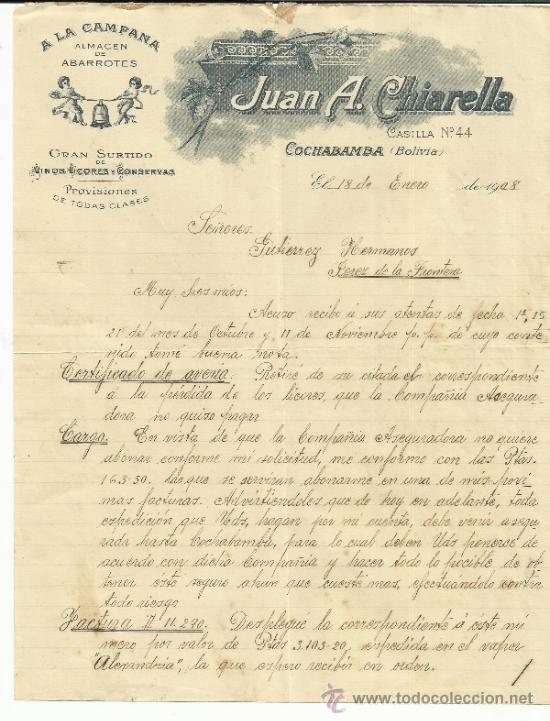 A LA CAMPANA
ALMACEN
DE
ABARROTES
GRAN SURTIDO
DE
VINOS LICORES Y CONSERVAS
Provisiones
DE TODAS CLASES
Juan A. Chiarella
CASILLA Nº 44
COCHABAMBA (Bolivia)
El 18 de Enero de 1908
Señores.
Gutierrez Hermanos
Jerez de la Frontera
Muy Sres mios:
Acuso recibo á sus atentas de fecha 1º, 15
21 del mes de Octubre y 11 de Noviembre p. p. de cuyo conte
nido tome buena nota.
Certificado de averia. Retiré de su citada el correspondiente
á la pérdida de los licores, que la Compañia Asegura
dora no quiso pagar
Cargo. En vista de que la Compañia Aseguradora no quiere
abonar conforme mi solicitud, me conformo con las Ptas.
16.3.50, las que se serviran abonarme en una de mis proxi
mas facturas. Advirtiendoles, que de hoy en adelante, toda
espedición que Vds, hagan por mi cuenta, debe venir asegu
rada hasta Cochabamba, para lo cual deben Uds ponerse de
acuerdo con dicha Compañia y hacer todo lo pocible de ob
tener este seguro ahun que cueste mas, efectuandolo contra
todo riesgo
Factura # 11.290. Desplegué la correspondiente á éste nú
mero por valor de Ptas 3.103-20, espedida en el vapor
"Alexandria", la que espero recibir en orden.
todocoleccion
www.todocoleccion.net